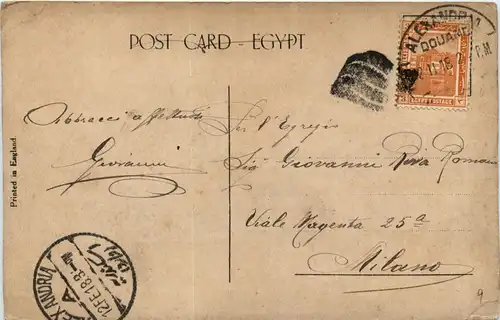 POST CARD - EGYPT
ALEXANDRIA
DOUANE
PM
EGYPT POSTAGE
Abbracci affettuosi
Giovanni
Per l'Egregio
Sig Giovanni Riva Romano
Viale Magenta 25a
Milano
Printed in England.
ALEXANDRIA
A
12 FE 18
9